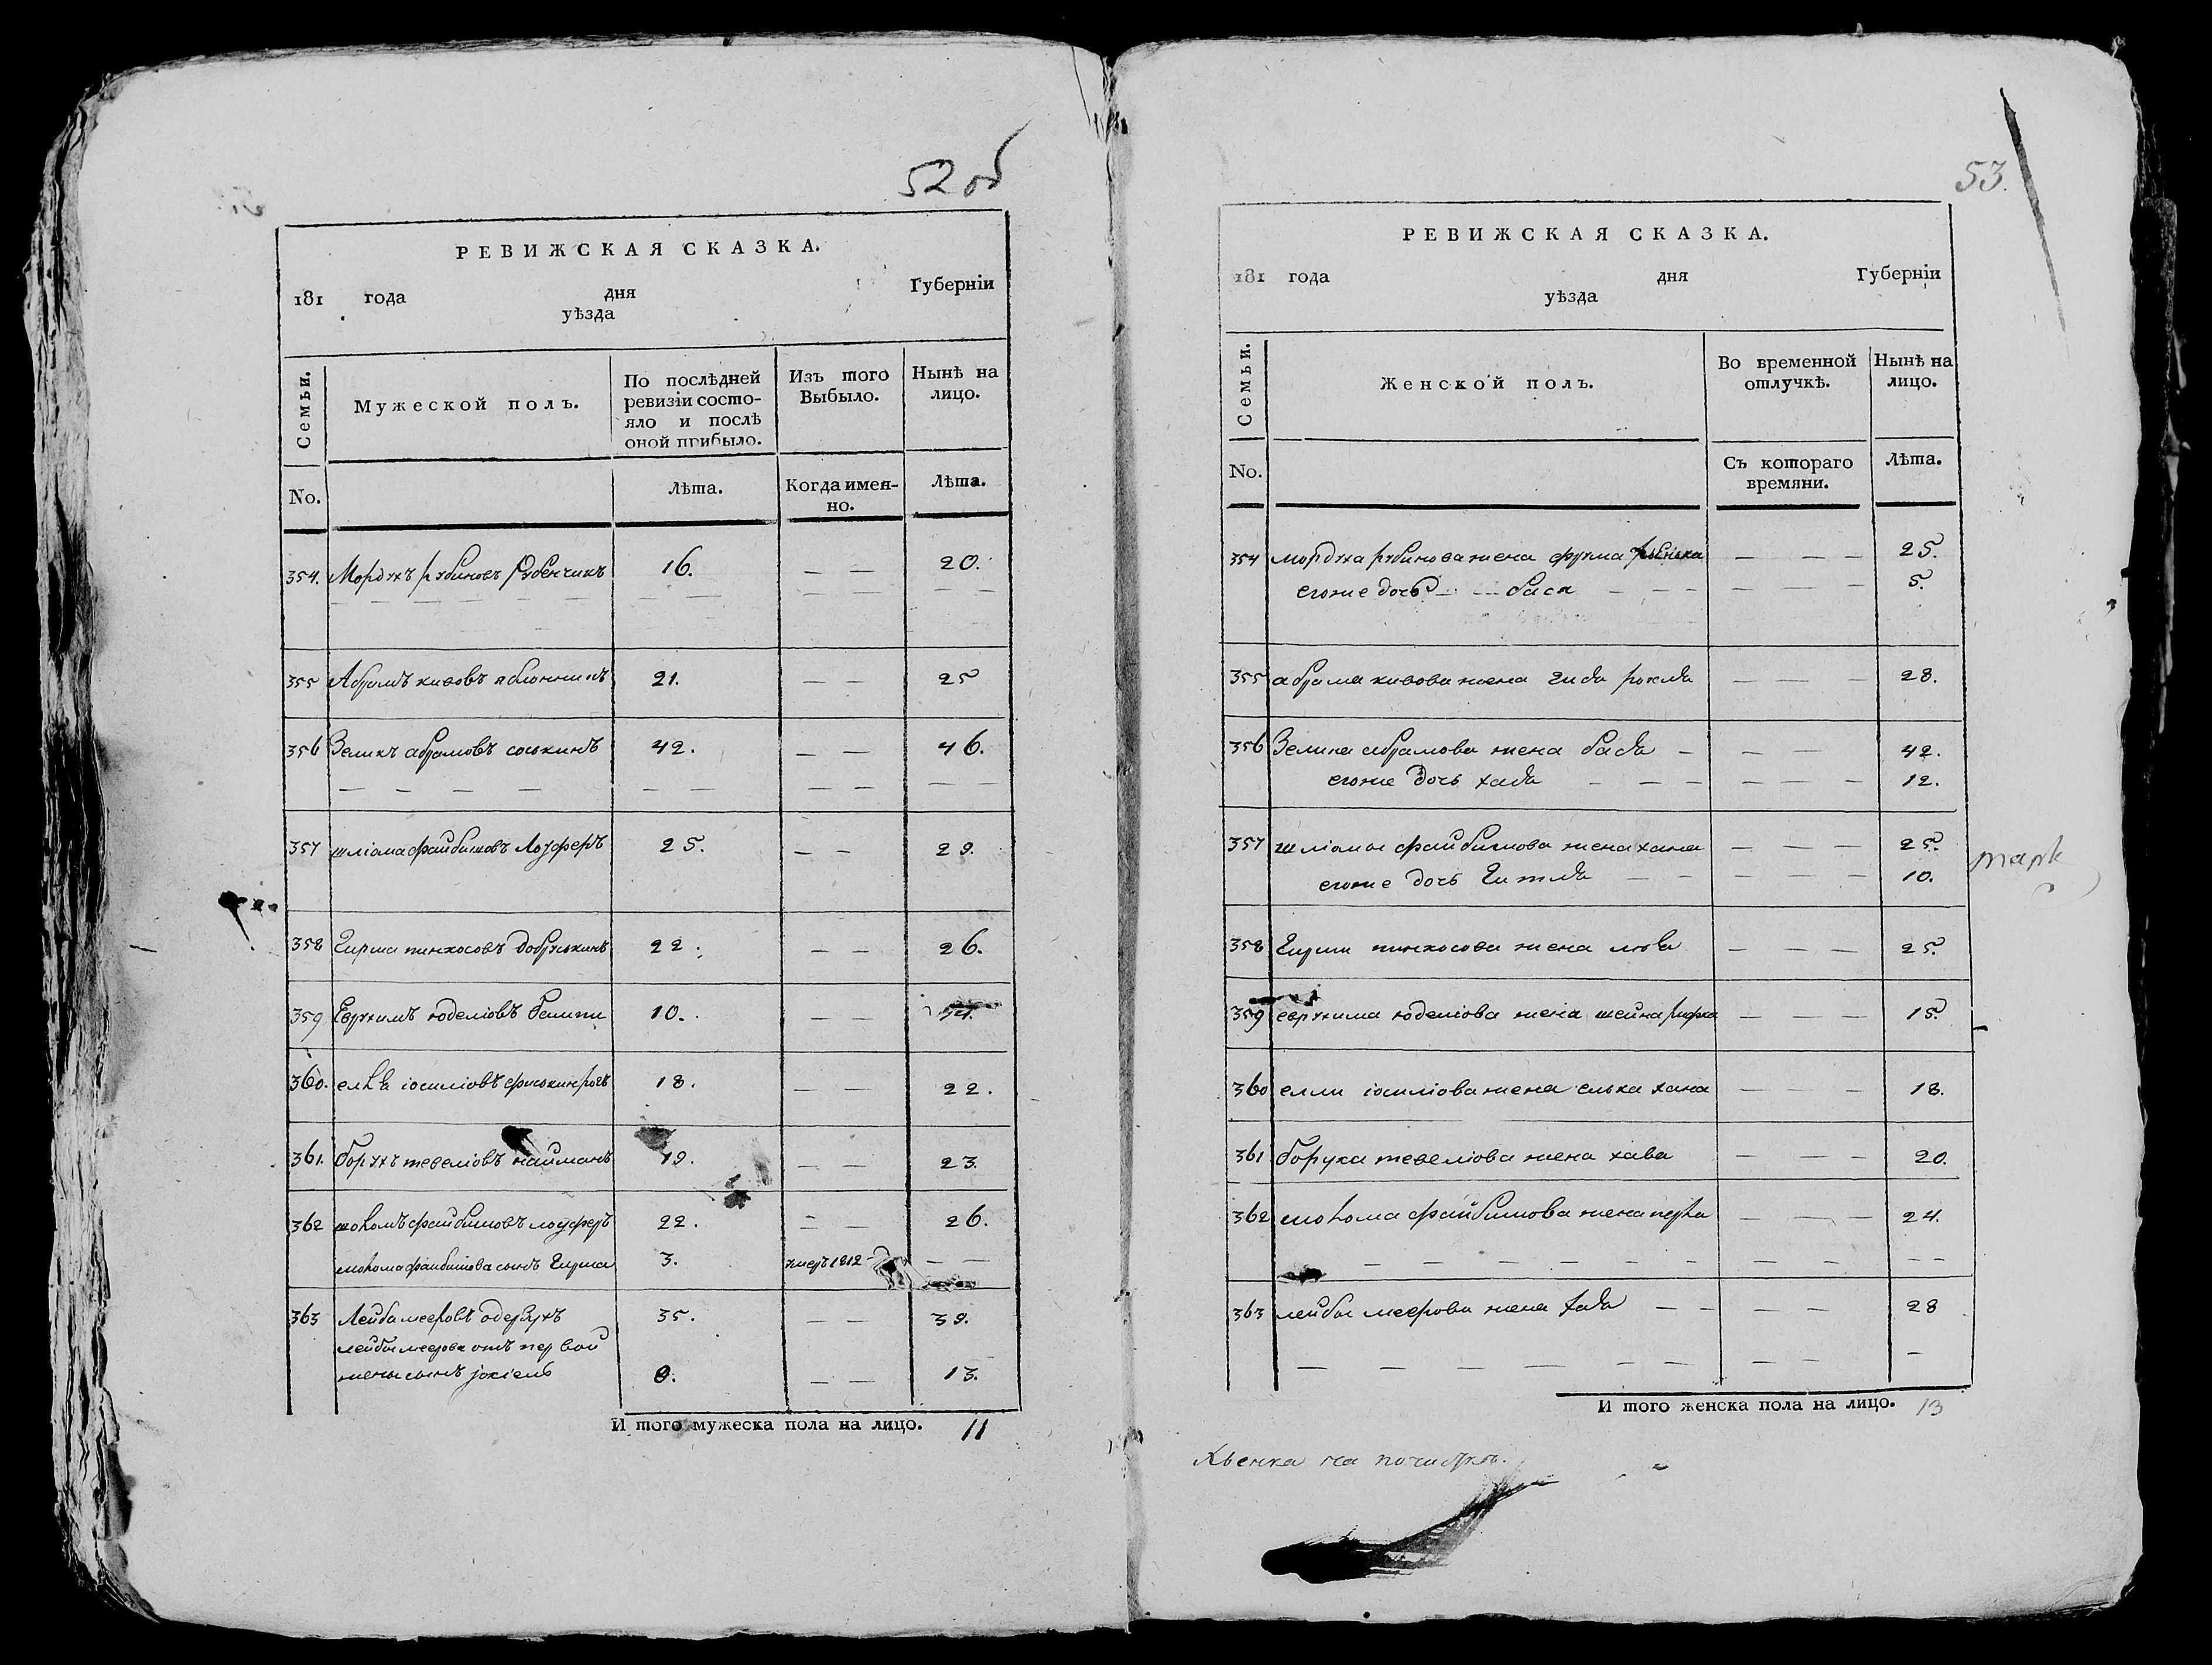 52 об
РЕВИЖСКАЯ СКАЗКА.
181 года дня Губерніи
уѣзда
Семьи.
Мужеской полъ.
По послѣдней ревизіи состояло и послѣ оной прибыло.
Изъ того Выбыло.
Нынѣ на лицо.
No.
Лѣта.
Когда именно.
Лѣта.
354. Мордухъ рубиновъ Рубенчикъ 16. — — 20.
355 Абрамъ кивовъ 21. — — 25
356 Зеликъ абрамовъ соськинъ 42. — — 46.
357 шліома файбишовъ Лоуферъ 25. — — 29.
358 Гирша пинхосовъ добруськинъ 22. — — 26.
359 Еврухимъ юделіовъ 10. — —
360. іосиліовъ 18. — — 22.
361. борухъ тевеліовъ найманъ 19. — — 23.
362 шоломъ файбишовъ лоуферъ 22. — — 26.
шолома файбишова сынъ Гирша 3. умеръ 1812 — —
363 Лейба мееровъ 35. — — 39.
лейбы меерова отъ первой
жены сынъ іокіель 9. — — 13.
И того мужеска пола на лицо. 11
53.
РЕВИЖСКАЯ СКАЗКА.
181 года дня Губерніи
уѣзда
Семьи.
Женской полъ.
Во временной отлучкѣ.
Нынѣ на лицо.
No.
Съ котораго времяни.
Лѣта.
354 мордуха рубинова жена фрума — — — 25.
егоже дочь бася — — — 5.
355 абрама кивова жена — — — 28.
356 Зелика абрамова жена — — — 42.
егоже дочь — — — 12.
357 шліомы файбишова жена хана — — — 25.
егоже дочь Гитля — — — 10.
358 Гирши пинхосова жена — — — 25.
359 еврухима юделіова жена шейна рифка — — — 15.
360 елли іосиліова жена елька хана — — — 18.
361 боруха тевеліова жена хава — — — 20.
362 шолома файбишова жена перла — — — 24.
363 лейбы меерова жена — — — 28
И того женска пола на лицо. 13